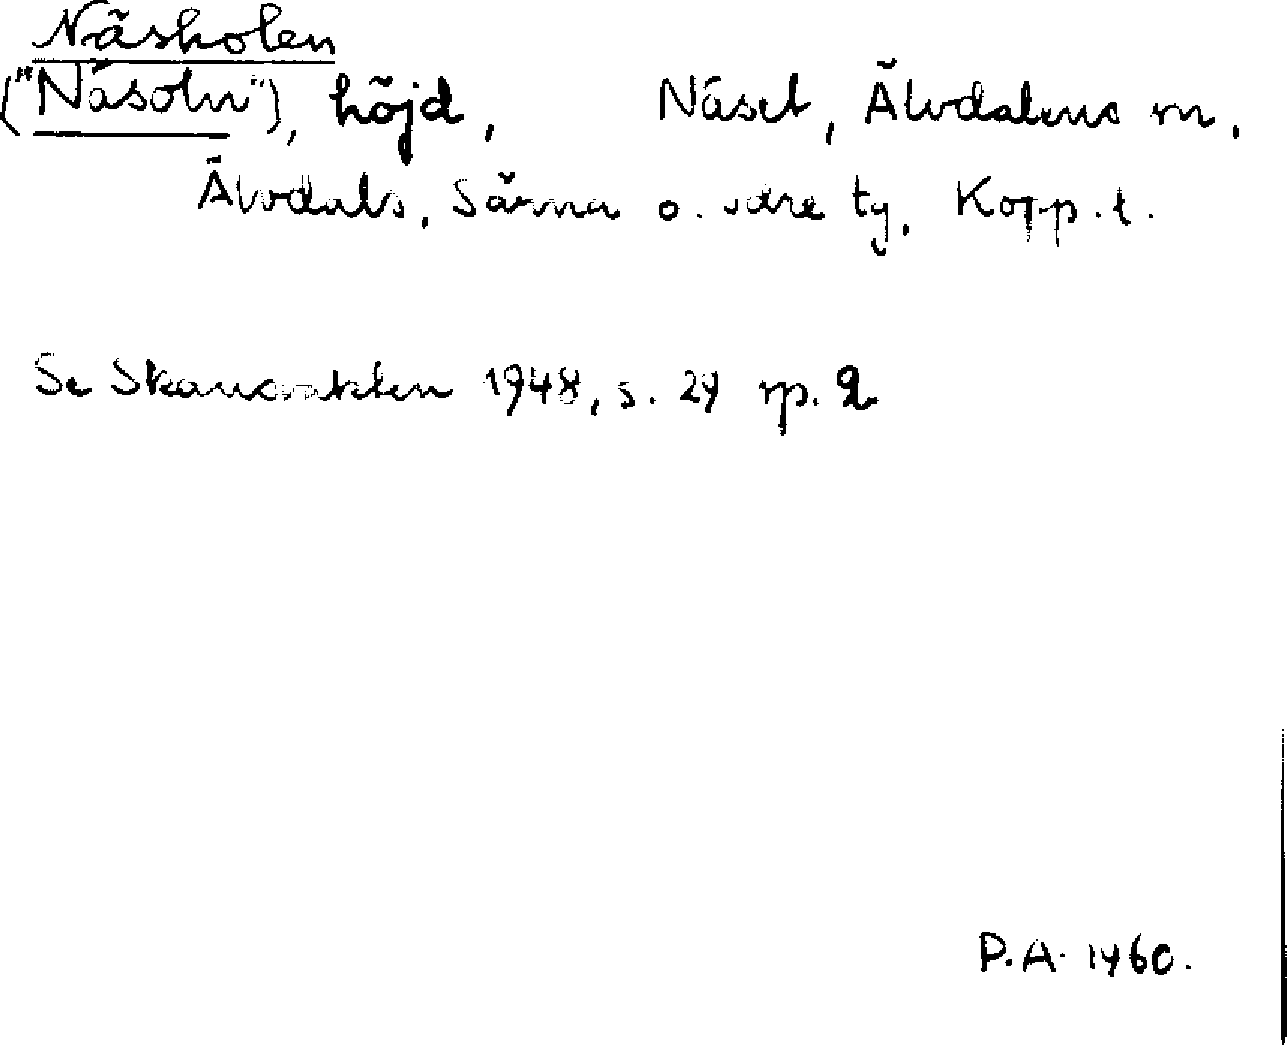 Näsholen
("Näsoln"), höjd, Näset, Älvdalens sn,
Älvdals, Särna o. Idre tg, Kopp. l.
Se Skansvakten 1948, s. 29 sp. 2
P.A. 1960.